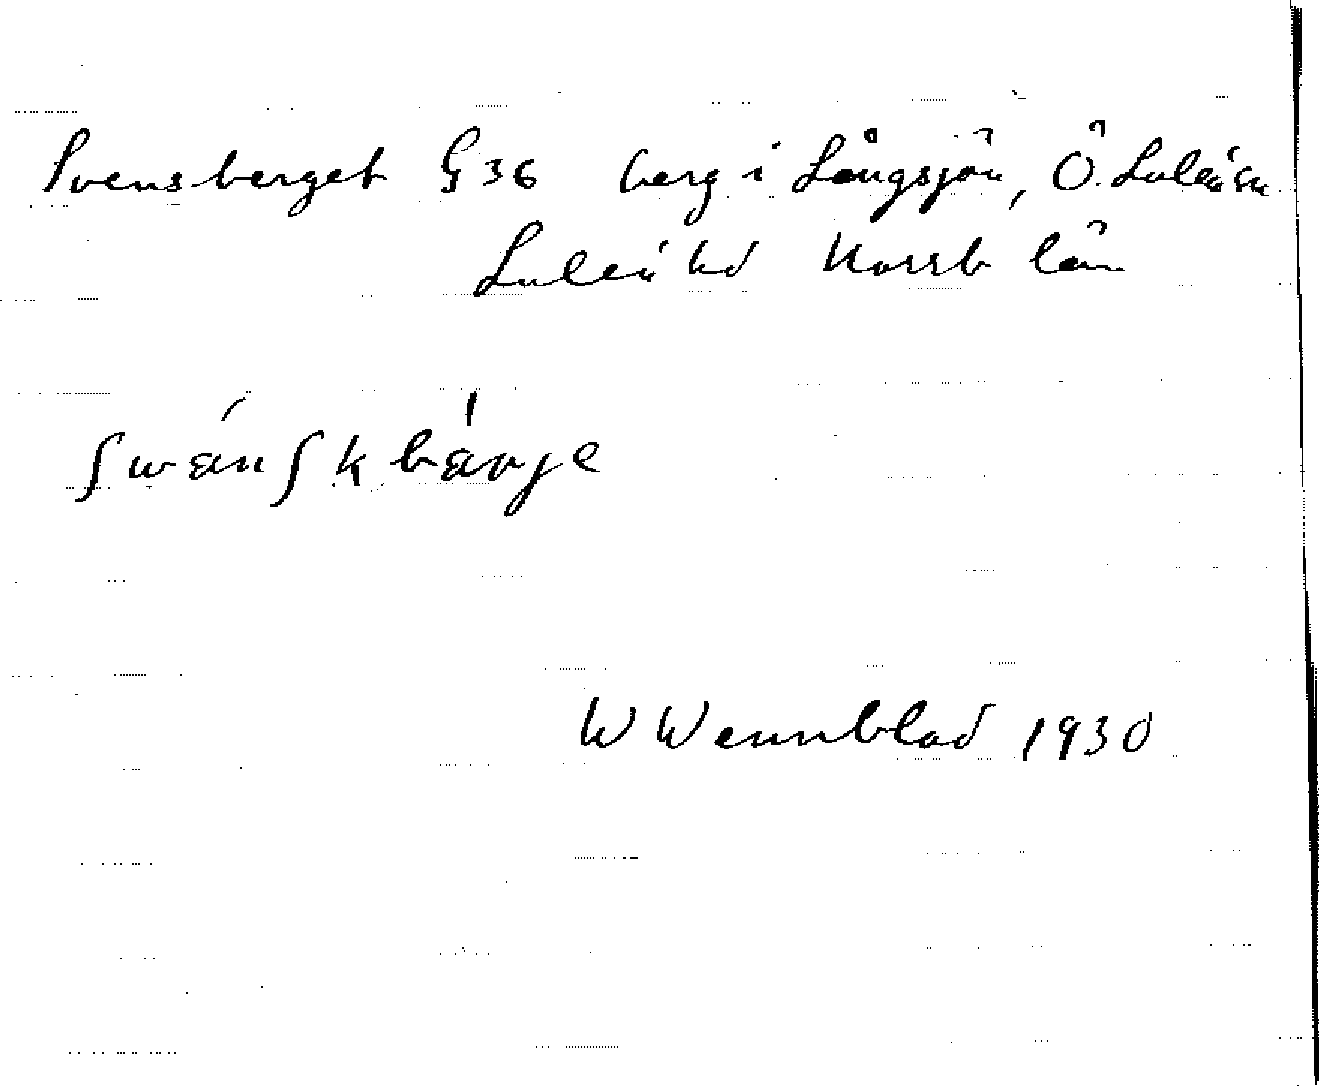 Svensberget G 36 berg i Långsjön, Ö. Luleå sn
Luleå hd Norrb län
ſwánſkbárje
W Wennblad 1930